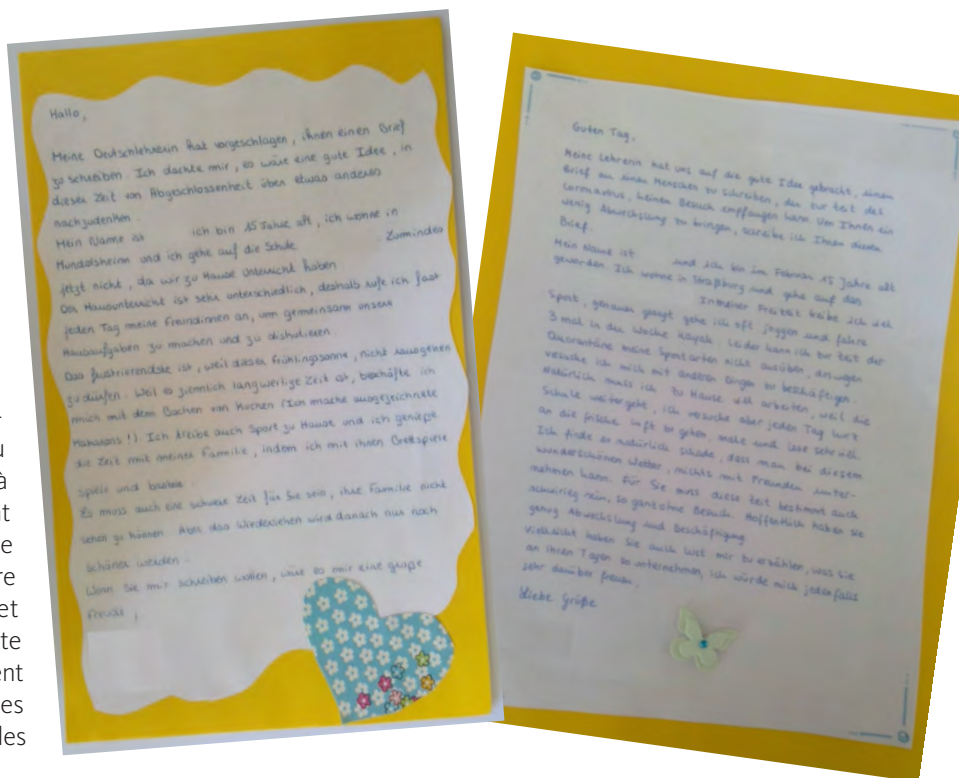 Hallo,
Meine Deutschlehrerin hat vorgeschlagen, ihnen einen Brief
zu schreiben. Ich dachte mir, es wäre eine gute Idee, in
dieser Zeit von Abgeschlossenheit über etwas anderes
nachzudenken.
Mein Name ist ich bin 15 Jahre alt, ich wohne in
Mundolsheim und ich gehe auf die Schule . Zumindest
jetzt nicht, da wir zu Hause Unterricht haben
Der Hausunterricht ist sehr unterschiedlich, deshalb rufe ich fast
jeden Tag meine Freundinnen an, um gemeinsam unsere
Hausaufgaben zu machen und zu diskutieren.
Das frustrierendste ist, weil dieser Frühlingssonne, nicht rausgehen
zu dürfen. Weil es ziemlich langweilige Zeit ist, beschäfte ich
mich mit dem Backen von Kuchen (Ich mache ausgezeichnete
Makarons!). Ich treibe auch Sport zu Hause und ich genieße
die Zeit mit meiner Familie, indem ich mit ihnen Brettspiele
spiele und bastele.
Es muss auch eine schwere Zeit für Sie sein, ihre Familie nicht
sehen zu können. Aber das Wiedersehen wird danach nur noch
schöner werden.
Wenn Sie mir schreiben wollen, wäre es mir eine große
Freude,
Guten Tag,
Meine Lehrerin hat uns auf die gute Idee gebracht, einen
Brief an einen Menschen zu schreiben, der zur Zeit des
Coronavirus, keinen Besuch empfangen kann. Um Ihnen ein
wenig Abwechslung zu bringen, schreibe ich Ihnen diesen
Brief.
Mein Name ist und ich bin im Februar 15 Jahre alt
geworden. Ich wohne in Straßburg und gehe auf das
In meiner Freizeit treibe ich viel
Sport, genauer gesagt gehe ich oft joggen und fahre
3 mal in der Woche Kayak. Leider kann ich zur Zeit der
Quarantäne meine Sportarten nicht ausüben, deswegen
versuche ich mich mit anderen Dingen zu beschäftigen.
Natürlich muss ich zu Hause viel arbeiten, weil die
Schule weitergeht, ich versuche aber jeden Tag kurz
an die frische Luft zu gehen, male und lese sehr viel.
Ich finde es natürlich schade, dass man bei diesem
wunderschönen Wetter, nichts mit Freunden unter-
nehmen kann. Für Sie muss diese Zeit bestimmt auch
schwierig sein, so ganz ohne Besuch. Hoffentlich haben sie
genug Abwechslung und Beschäftigung
Vielleicht haben Sie auch Lust mir zu erzählen, was sie
an ihren Tagen so unternehmen, ich würde mich jedenfalls
sehr darüber freuen,
Liebe Grüße
u
à
nt
e
re
et
te
ent
es
les